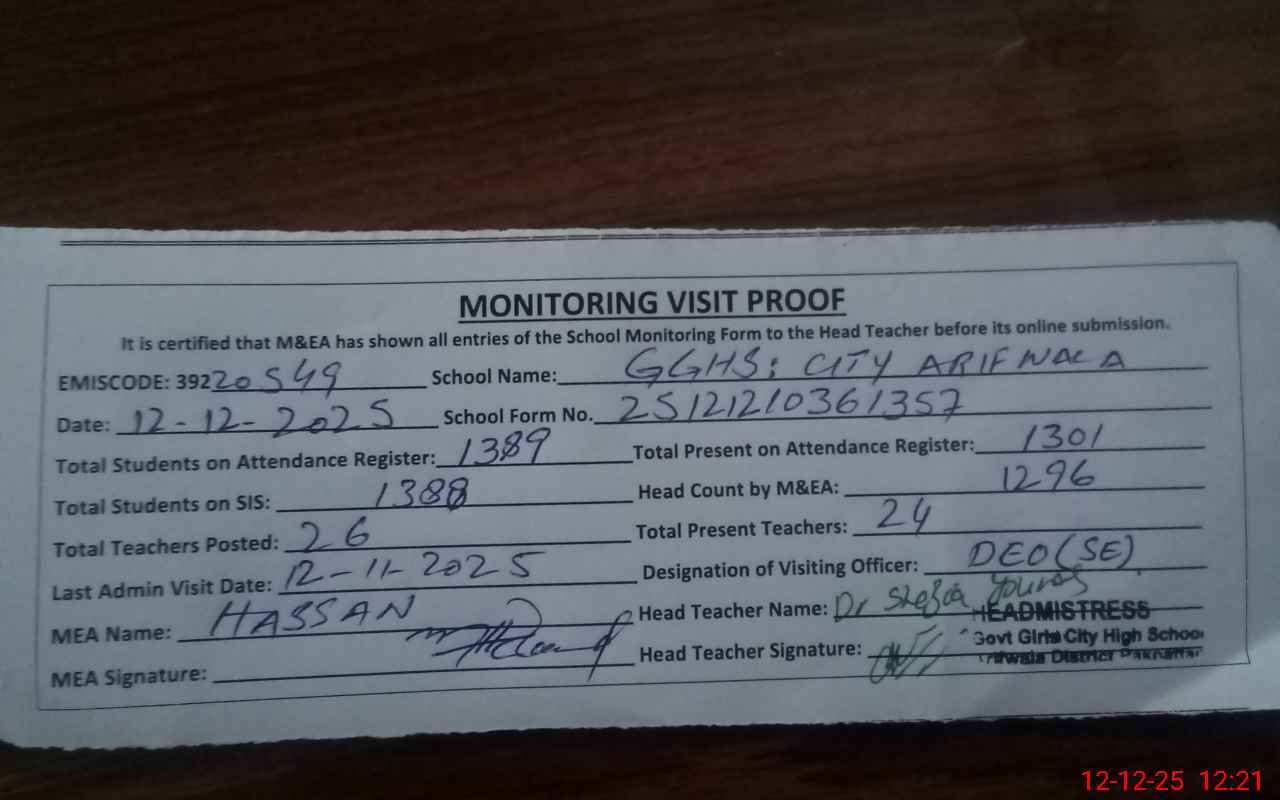 MONITORING VISIT PROOF
It is certified that M&EA has shown all entries of the School Monitoring Form to the Head Teacher before its online submission.
EMISCODE: 39220549 School Name: GGHS: CITY ARIFWALA
Date: 12-12-2025 School Form No. 25121210361357
Total Students on Attendance Register: 1389 Total Present on Attendance Register: 1301
Total Students on SIS: 1388 Head Count by M&EA: 1296
Total Teachers Posted: 26 Total Present Teachers: 24
Last Admin Visit Date: 12-11-2025 Designation of Visiting Officer: DEO(SE)
MEA Name: HASSAN Head Teacher Name: Dr Younas
HEADMISTRESS
MEA Signature: Head Teacher Signature:
Govt Girls City High School
District
12-12-25 12:21